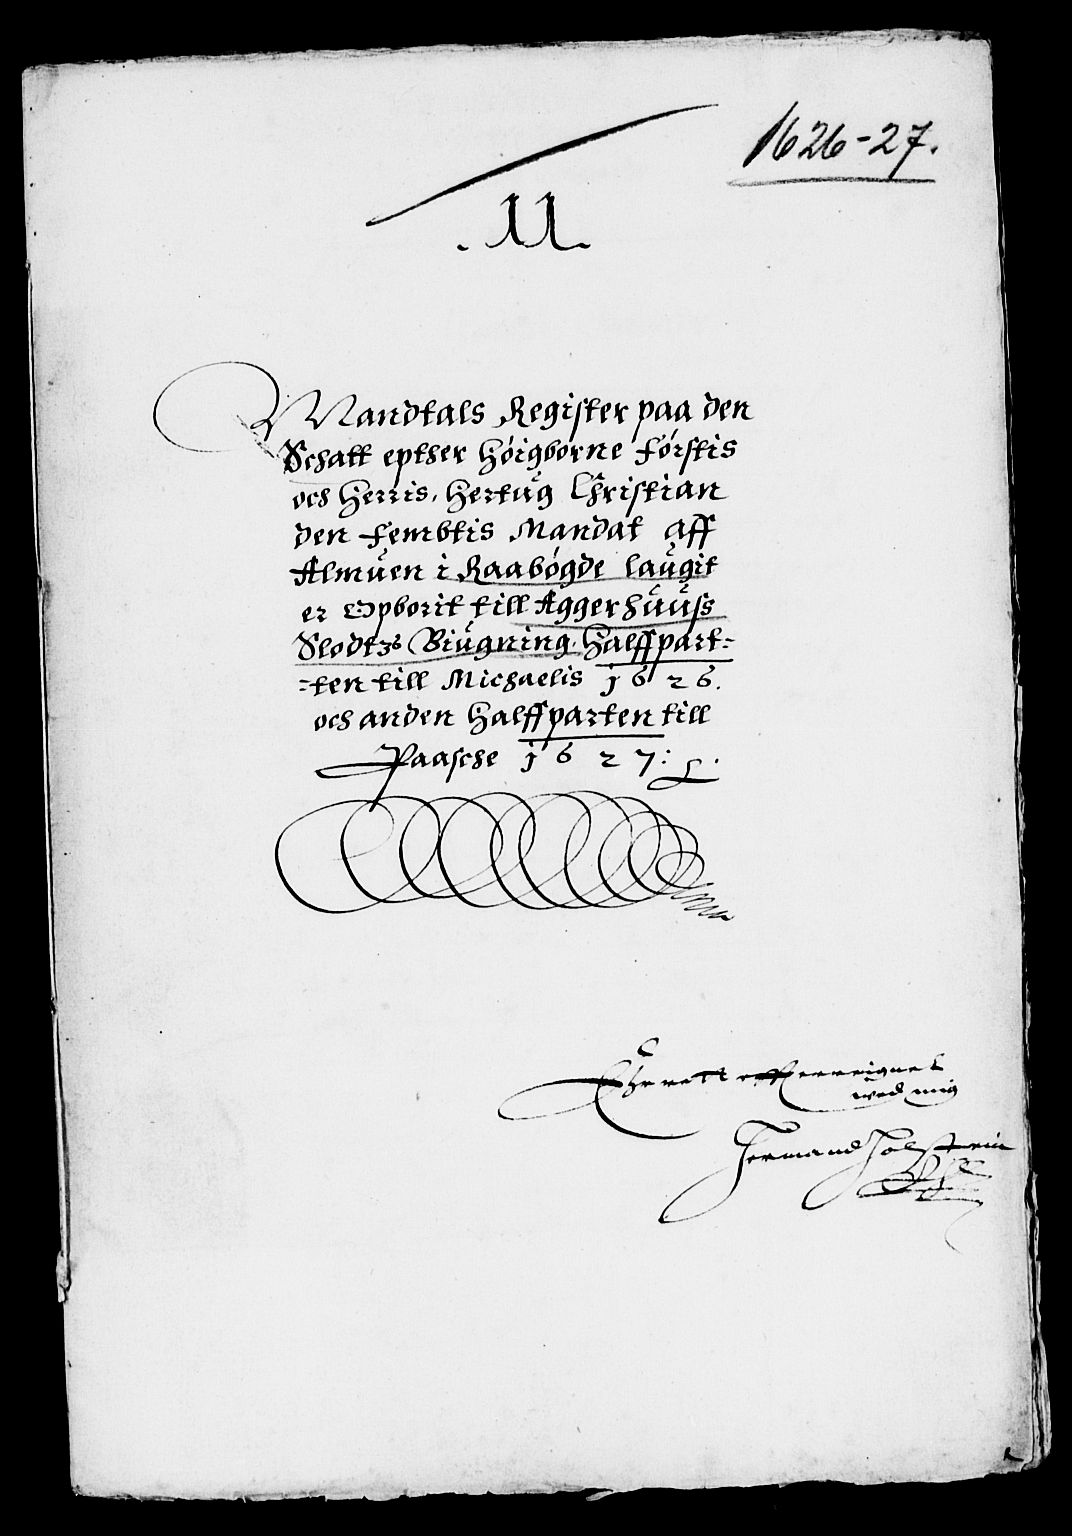 1626-27.
. 11.
Mandtals Register paa den
Schatt epther Høigborne Førstis
och Herris, Hertug Christian
den Fembtis Mandat aff
Almuen i Raabøgde laugit
er Opborit till Aggerhuuss
Slodtzs Biugning. Halffpart=
=ten till Michaelis 1626.
och anden Halffparten till
Paasche 1627:
wed mig
Hermand Holstein